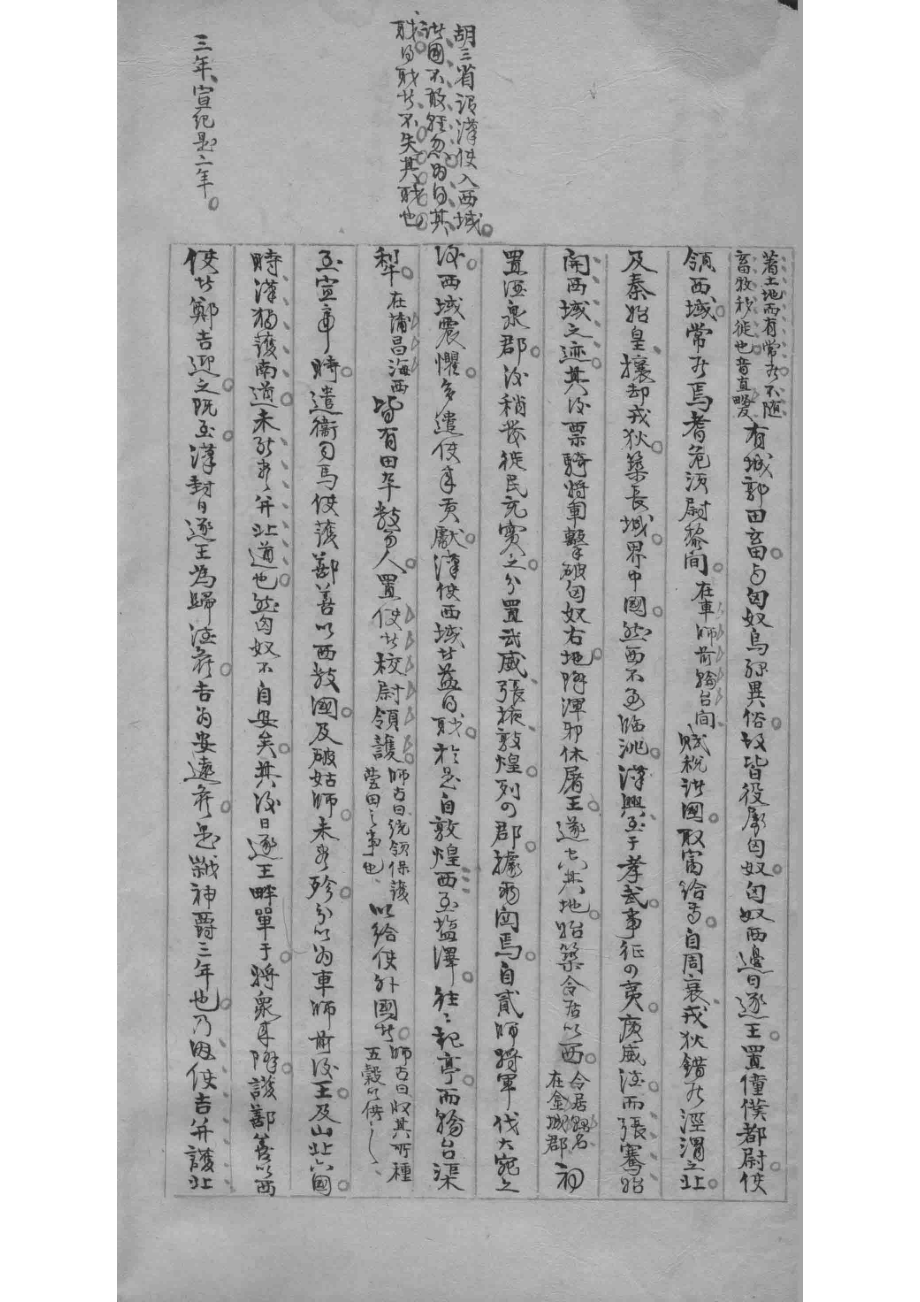 胡三省說漢使入西域
諸國不敢輕忽為得其
職得職者不失其職也
三年、宣紀是二年。
著土地而有常居不隨
畜牧移徙也音直畧
有城郭田畜與匈奴烏孫異俗故皆役屬匈奴匈奴西邊日逐王置僮僕都尉使
領西域常居焉耆危須尉黎間
在車師前輪台間
賦稅諸國取富給焉自周衰戎狄錯居涇渭之北
及秦始皇攘却戎狄築長城界中國然西不過臨洮漢興至于孝武事征四夷廣威德而張騫始
開西域之迹其後票騎將軍擊破匈奴右地降渾邪休屠王遂空其地始築令居以西
令居縣名
在金城郡
初
置酒泉郡後稍發徙民充實之分置武威張掖敦煌列四郡據兩關焉自貳師將軍伐大宛之
後西域震懼多遣使來貢獻漢使西域者益得職於是自敦煌西至鹽澤往〻起亭而輪台渠
犂
在蒲昌海西
皆有田卒數百人置使者校尉領護
師古曰統領保護
營田之事也
以給使外國者
師古曰收其所種
五穀以供之
至宣帝時遣衛司馬使護鄯善以西數國及破姑師未盡殄分以為車師前後王及山北六國
時漢獨護南道未能盡并北道也然匈奴不自安矣其後日逐王畔單于將衆來降護鄯善以西
使者鄭吉迎之既至漢封日逐王為歸德侯吉為安遠侯是歲神爵三年也乃因使吉并護北